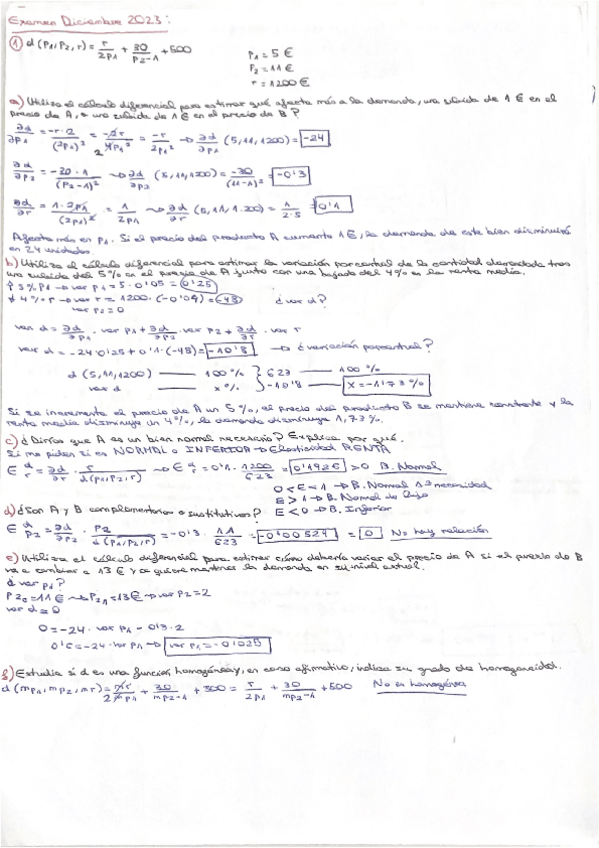 Examen Diciembre 2023:
① d(P1,P2,r) = r/2P1 + 30/P2-1 + 500
P1 = 5 €
P2 = 11 €
r = 1200 €
a) Utiliza el cálculo diferencial para estimar qué afecta más a la demanda, una subida de 1 € en el
precio de A, o una subida de 1 € en el precio de B?
∂d/∂P1 = -r·2/(2P1)² = -2r/4P1² = -r/2P1² → ∂d/∂P1 (5,11,1200) = -24
∂d/∂P2 = -30·1/(P2-1)² → ∂d/∂P2 (5,11,1200) = -30/(11-1)² = -0'3
∂d/∂r = 1·2P1/(2P1)² = 1/2P1 → ∂d/∂r (5,11,1.200) = 1/2·5 = 0'1
Afecta más en P1. Si el precio del producto A aumenta 1€, la demanda de este bien disminuirá
en 24 unidades.
b) Utiliza el cálculo diferencial para estimar la variación porcentual de la cantidad demandada tras
una subida del 5% en el precio de A junto con una bajada del 4% en la renta media.
↑ 5% P1 → var P1 = 5·0'05 = 0'25
↓ 4% r → var r = 1200·(-0'04) = -48
¿var d?
var P2 = 0
var d = ∂d/∂P1 · var P1 + ∂d/∂P2 · var P2 + ∂d/∂r · var r
var d = -24·0'25 + 0'1·(-48) = -10'8 → ¿variación porcentual?
d (5,11,1200) — 100%
var d — x%
623 — 100%
-10'8 — X = -1'73%
Si se incrementa el precio de A un 5%, el precio del producto B se mantiene constante y la
renta media disminuye un 4%, la demanda disminuye 1,73%.
c) ¿Dirías que A es un bien normal necesario? Explica por qué.
Si me piden si es NORMAL o INFERIOR → Elasticidad RENTA
E d/r = ∂d/∂r · r/d(P1,P2,r) → E d/r = 0'1 · 1200/623 = 0'1926 > 0 B. Normal
0 < E < 1 → B. Normal 1ª necesidad
E > 1 → B. Normal de lujo
E < 0 → B. Inferior
d) ¿Son A y B complementarios o sustitutivos?
E d/P2 = ∂d/∂P2 · P2/d(P1,P2,r) = -0'3 · 11/623 = -0'00524 = 0 No hay relación
e) Utiliza el cálculo diferencial para estimar cómo debería variar el precio de A si el precio de B
va a cambiar a 13 € y se quiere mantener la demanda en su nivel actual.
¿var P1?
P20 = 11 € → P21 = 13 € → var P2 = 2
var d = 0
0 = -24 · var P1 - 0'3 · 2
0'6 = -24 · var P1 → var P1 = -0'025
f) Estudia si d es una función homogénea y, en caso afirmativo, indica su grado de homogeneidad.
d (mP1, mP2, mr) = mr/2mP1 + 30/mP2-1 + 500 = r/2P1 + 30/mP2-1 + 500 No es homogénea